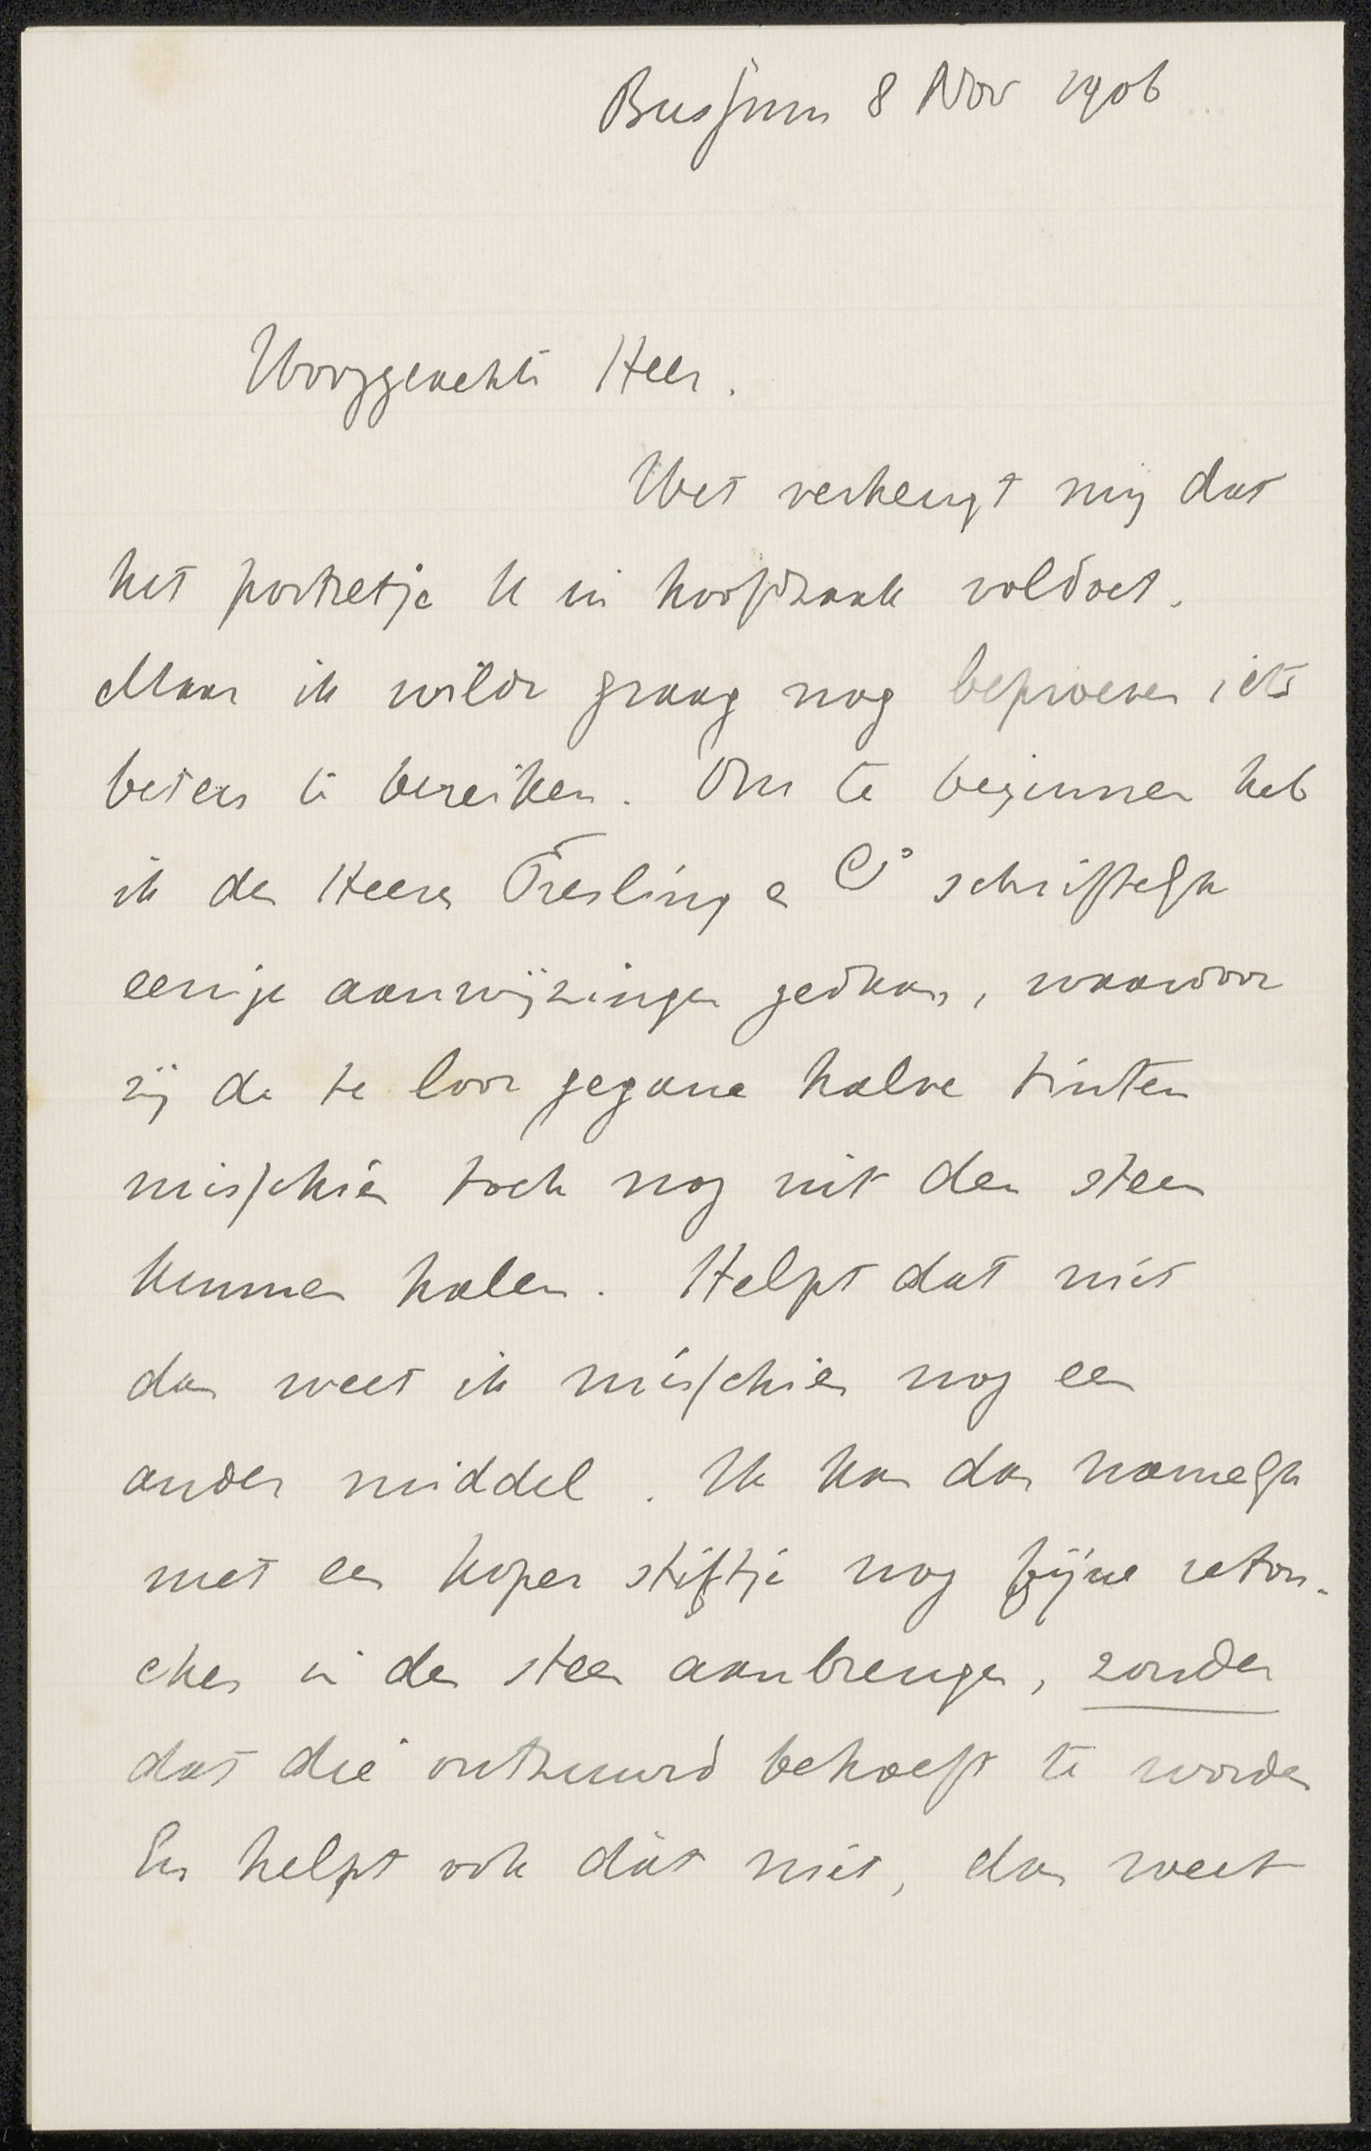 Bussum 8 Nov 1906
Hooggeachte Heer.
Het verheugt mij dat
het portretje U in hoofdzaak voldoet.
Maar ik wilde graag nog beproeven iets
beters te bereiken. Om te beginnen heb
ik den Heeren Tresling & Co schriftelijk
eenige aanwijzingen gedaan, waardoor
zij de te loor gegane halve tinten
misschien toch nog uit den steen
kunnen halen. Helpt dat niet
dan weet ik misschien nog een
ander middel. Ik kan dan namelijk
met een koper stiftje nog fijne retou-
ches in den steen aanbrengen, zonder
dat die ontzuurd behoeft te worden
En helpt ook dàt niet, dan weet